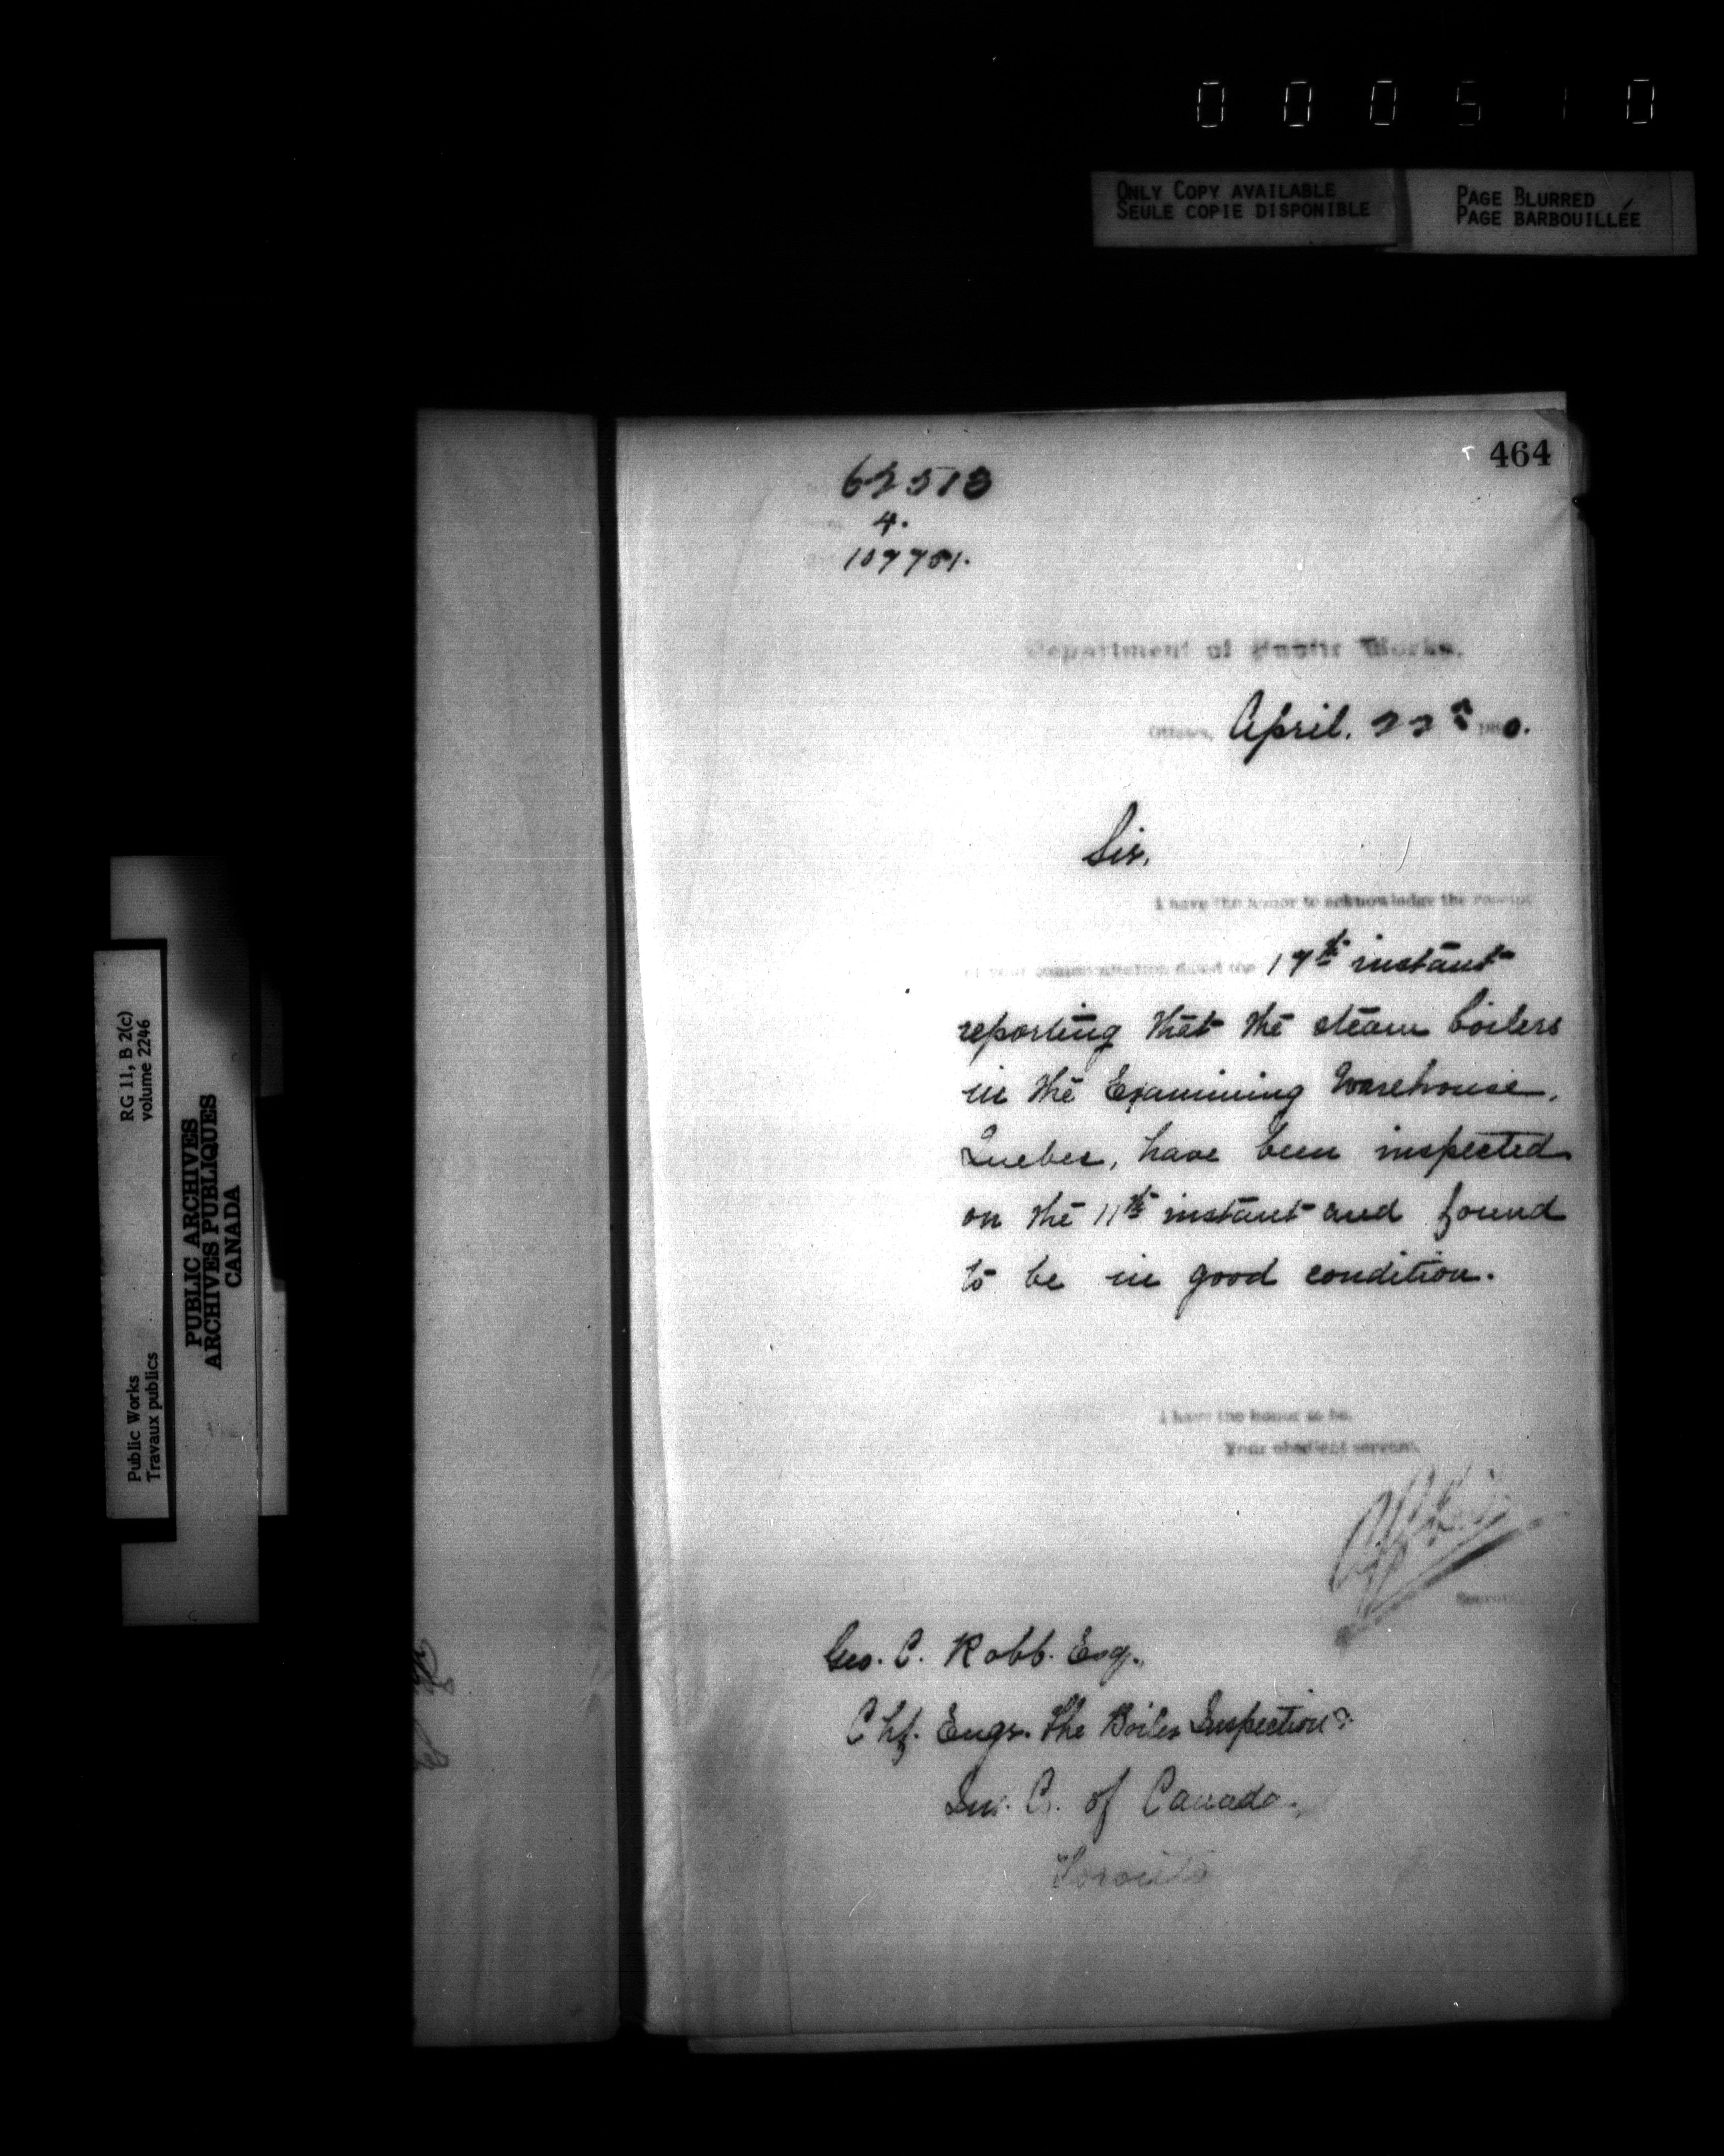 000510
ONLY COPY AVAILABLE
SEULE COPIE DISPONIBLE
PAGE BLURRED
PAGE BARBOUILLÉE
464
62513
4.
107751.
Department of Public Works.
Ottawa, April. 22nd 1890.
Sir,
I have the honor to acknowledge the receipt
of your communication dated the 17th instant
reporting that the steam boilers
in the Examining Warehouse,
Quebec, have been inspected
on the 11th instant and found
to be in good condition.
I have the honor to be,
Your obedient servant,
Geo. C. Robb. Esq.,
Chf. Engr. The Boiler Inspection &
Ins. Co. of Canada,
Toronto
RG 11, B 2(c)
volume 2246
Public Works
Travaux publics
PUBLIC ARCHIVES
ARCHIVES PUBLIQUES
CANADA